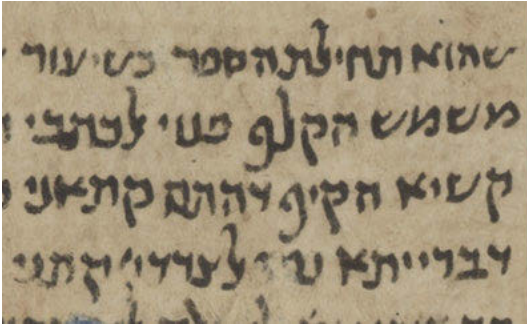 שהוא תחילת הספר כשיעור
משמש הקלף פנוי לכתבי
קשיא הקיף דהתם קתאני
דברייתא לצדדי׳ קתני